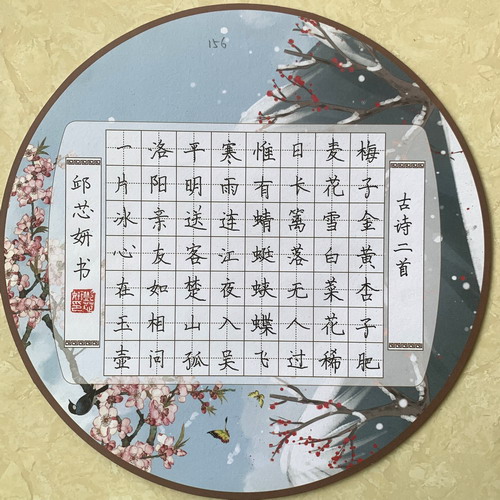 156
古诗二首
梅子金黄杏子肥
麦花雪白菜花稀
日长篱落无人过
惟有蜻蜓蛱蝶飞
寒雨连江夜入吴
平明送客楚山孤
洛阳亲友如相问
一片冰心在玉壶
邱芯妍书